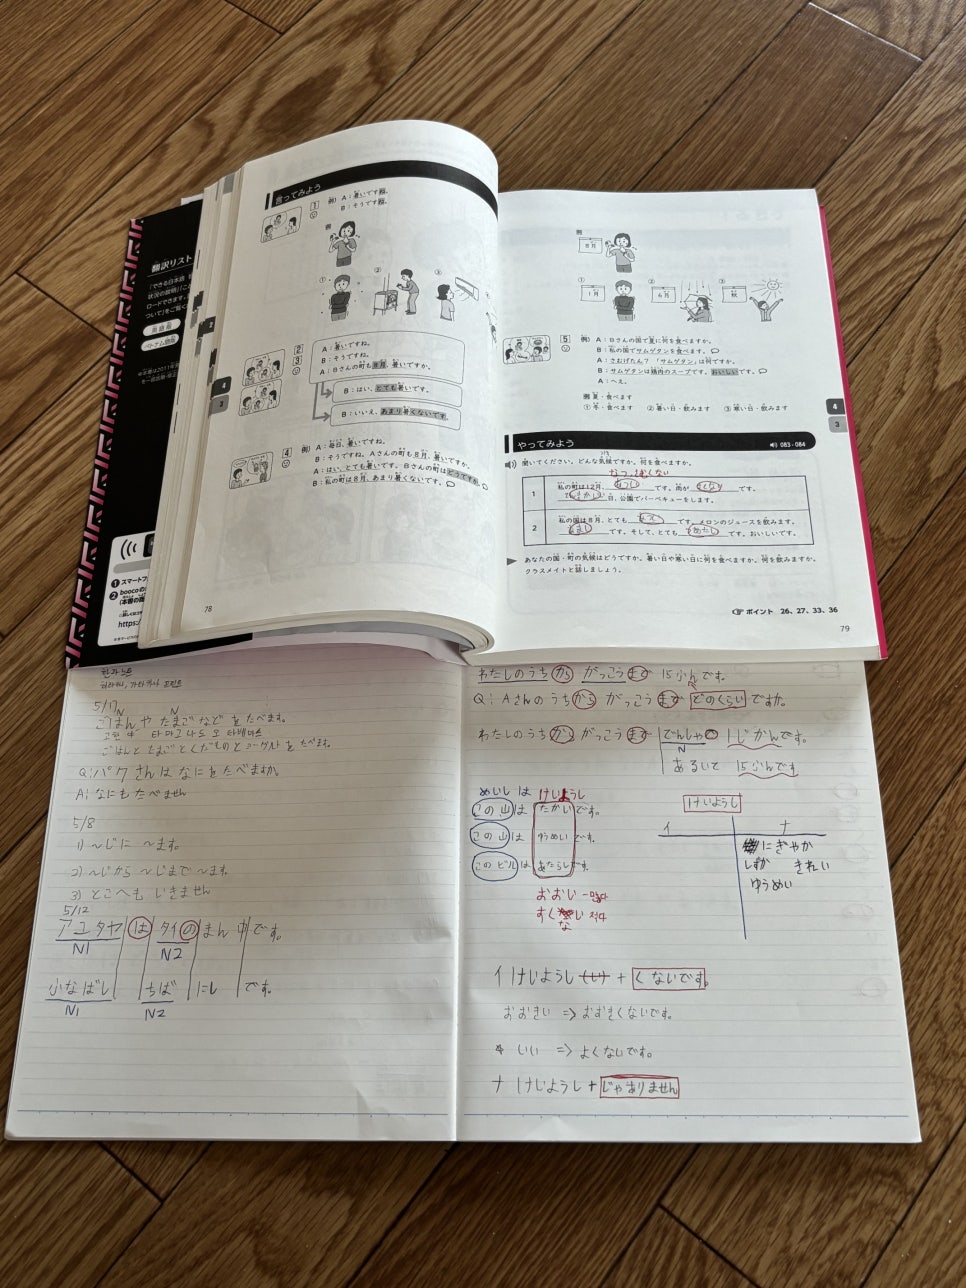 翻訳リスト
英語版
ベトナム語版
https:/
言ってみよう
1 例) A：暑いですね。
B：そうですね。
例
① ② ③
2
3
A：暑いですね。
B：そうですね。
A：Bさんの町も8月、暑いですか。
B：はい、とても暑いです。
B：いいえ、あまり暑くないです。
4 例) A：毎日、暑いですね。
B：そうですね。Aさんの町も8月、暑いですか。
A：はい、とても暑いです。Bさんの町はどうですか。
B：私の町は8月、あまり暑くないです。
78
4
3
例
8月
① 1月
② 6月
③ 秋
5 例) A：Bさんの国で夏に何を食べますか。
B：私の国でサムゲタンを食べます。
A：さむげたん？「サムゲタン」は何ですか。
B：サムゲタンは鶏肉のスープです。おいしいです。
A：へえ。
例 夏・食べます
① 冬・食べます ② 暑い日・飲みます ③ 寒い日・飲みます
4
3
やってみよう 083-084
聞いてください。どんな気候ですか。何を食べますか。
1 私の町は12月、 です。雨が です。
日、公園でバーベキューをします。
2 私の国は8月、とても です。メロンのジュースを飲みます。
です。そして、とても です。おいしいです。
あなたの国・町の気候はどうですか。暑い日や寒い日に何を食べますか。何を飲みますか。
クラスメイトと話しましょう。
ポイント 26、27、33、36
79
5/17
N N
ごはんや たまごなど をたべます。
ごはんと たまごと くだものと ヨーグルトを たべます。
Q：パクさんは なにを たべますか。
A：なにも たべません
5/8
1) 〜じに 〜ます。
2) 〜じから 〜じまで 〜ます。
3) どこへも いきません
5/12
アユタヤ は タイの まん中 です。
N1 N2
ふなばし ちば にし です。
N1 N2
わたしのうち から がっこう まで 15ふんです。
Q：Aさんのうち から がっこう まで どのくらい ですか。
わたしのうち から がっこう まで でんしゃで 1じかんです。
N
あるいて 15ふんです
めいし は けいようし
この山 は たかい です。
この山 は ゆうめい です。
このビル は あたらし です。
おおい
すくない
けいようし
イ ナ
にぎやか
しずか きれい
ゆうめい
イけいようし (い) + くないです。
おおきい => おおきくないです。
* いい => よくないです。
ナ けいようし + じゃありません